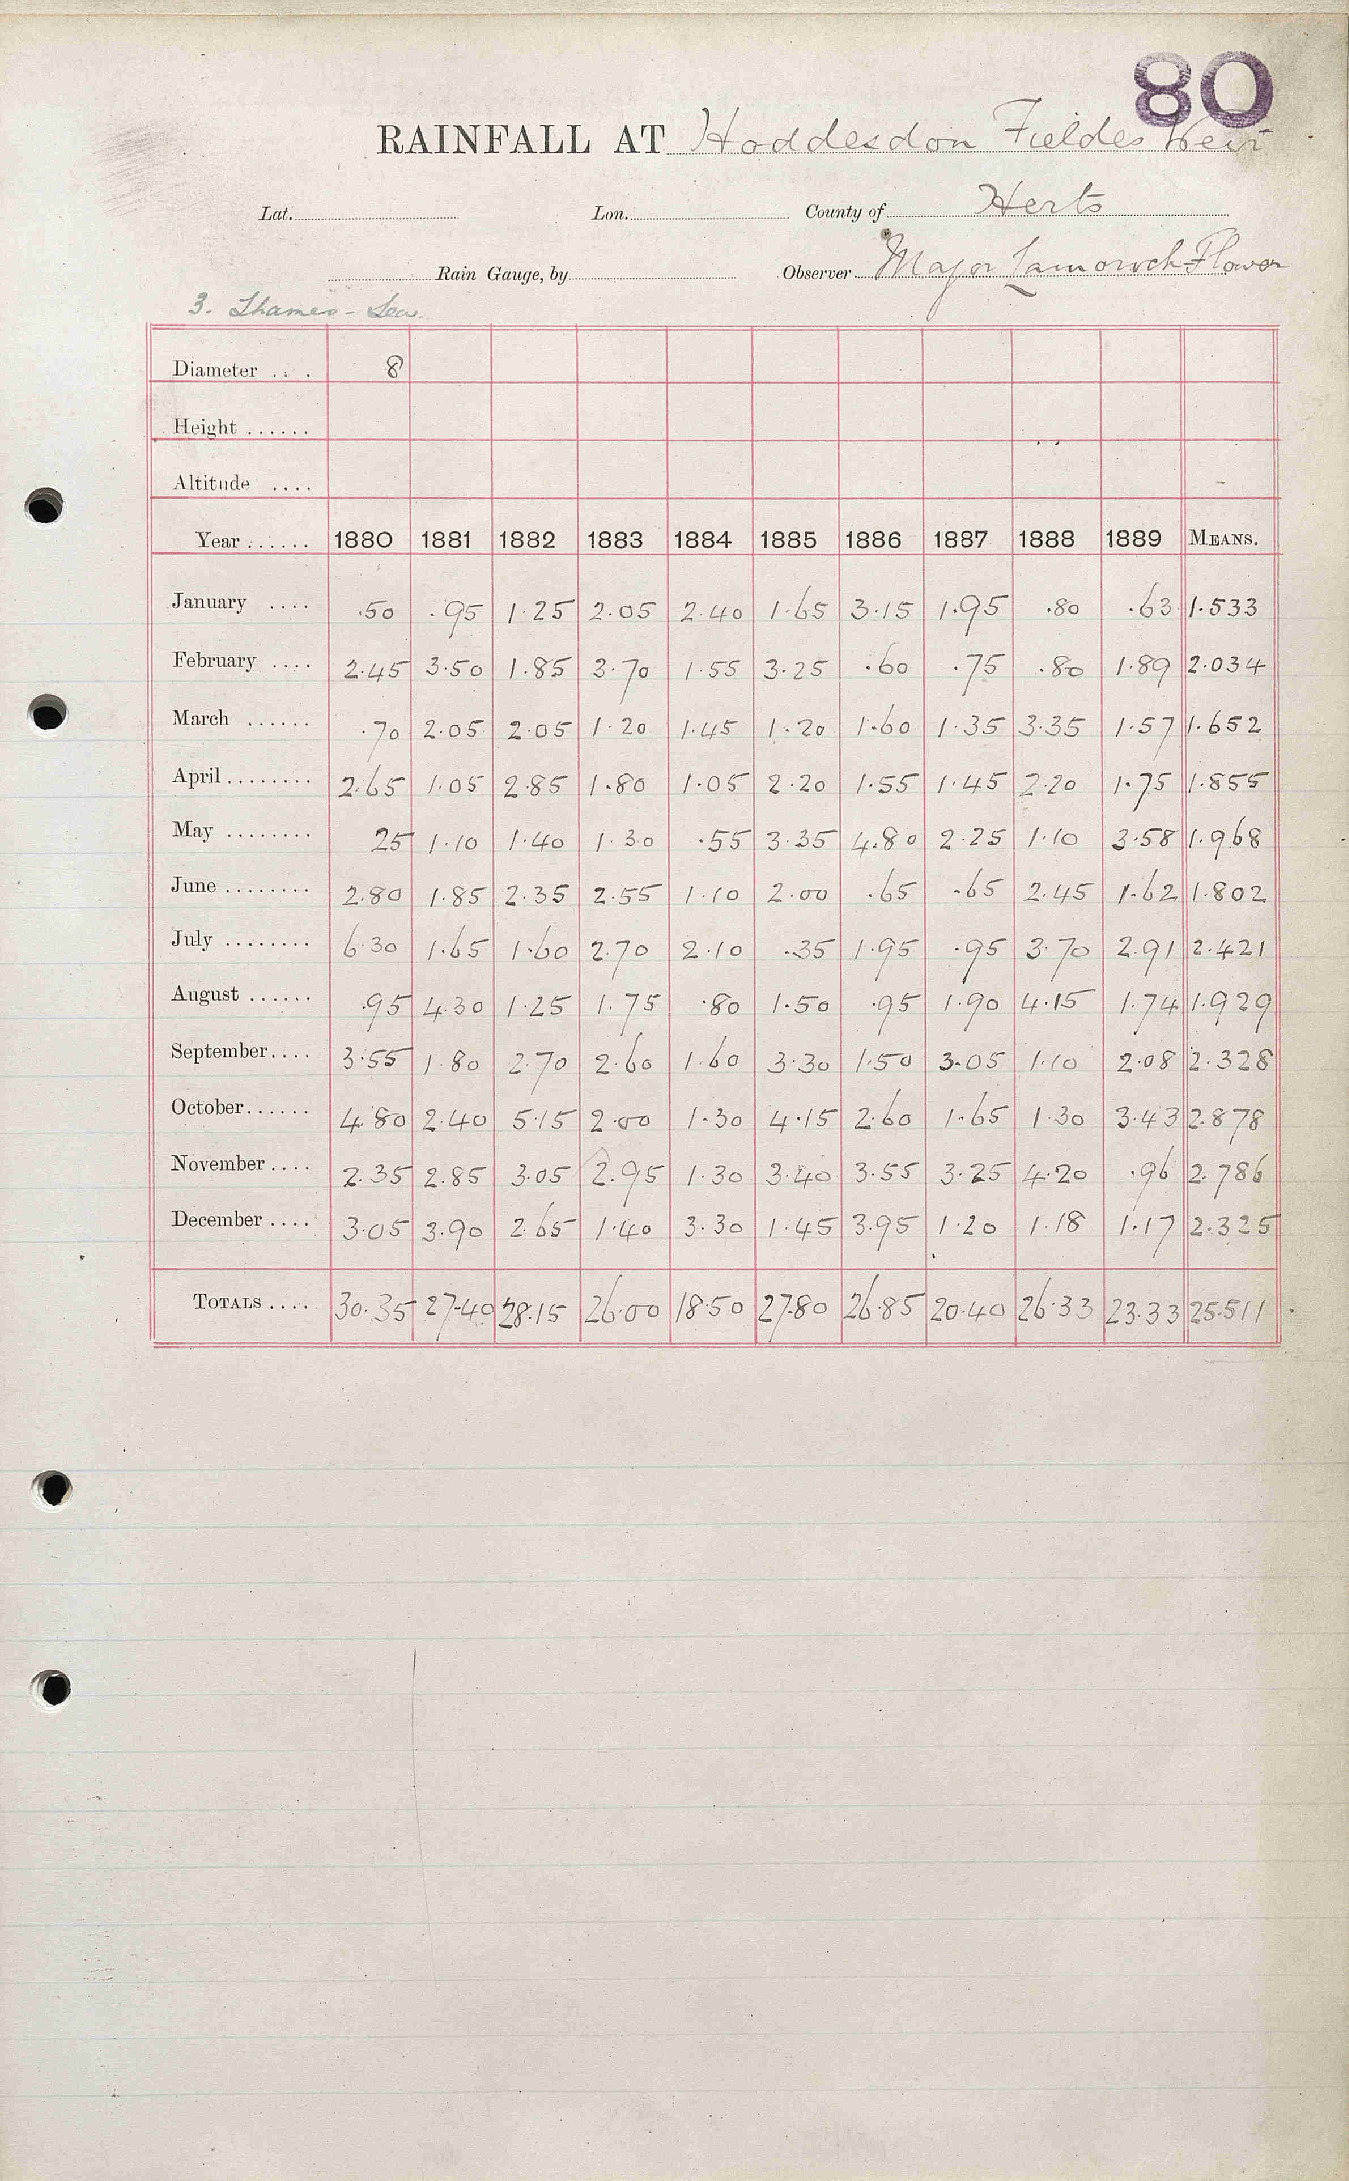 80
RAINFALL AT Hoddesdon Fieldes Weir
Lat. Lon. County of Herts
Rain Gauge, by Observer Major Lamorock Flower
3. Thames - Lea.
Diameter .... 8
Height ......
Altitude ....
Year ...... 1880 1881 1882 1883 1884 1885 1886 1887 1888 1889 MEANS.
January .... .50 .95 1.25 2.05 2.40 1.65 3.15 1.95 .80 .63 1.533
February .... 2.45 3.50 1.85 3.70 1.55 3.25 .60 .75 .80 1.89 2.034
March ...... .70 2.05 2.05 1.20 1.45 1.20 1.60 1.35 3.35 1.57 1.652
April ........ 2.65 1.05 2.85 1.80 1.05 2.20 1.55 1.45 2.20 1.75 1.855
May ........ 25 1.10 1.40 1.30 .55 3.35 4.80 2.25 1.10 3.58 1.968
June ........ 2.80 1.85 2.35 2.55 1.10 2.00 .65 .65 2.45 1.62 1.802
July ........ 6.30 1.65 1.60 2.70 2.10 .35 1.95 .95 3.70 2.91 2.421
August ...... .95 4.30 1.25 1.75 .80 1.50 .95 1.90 4.15 1.74 1.929
September .... 3.55 1.80 2.70 2.60 1.60 3.30 1.50 3.05 1.10 2.08 2.328
October ...... 4.80 2.40 5.15 2.00 1.30 4.15 2.60 1.65 1.30 3.43 2.878
November .... 2.35 2.85 3.05 2.95 1.30 3.40 3.55 3.25 4.20 .96 2.786
December .... 3.05 3.90 2.65 1.40 3.30 1.45 3.95 1.20 1.18 1.17 2.325
TOTALS .... 30.35 27.40 28.15 26.00 18.50 27.80 26.85 20.40 26.33 23.33 25.511